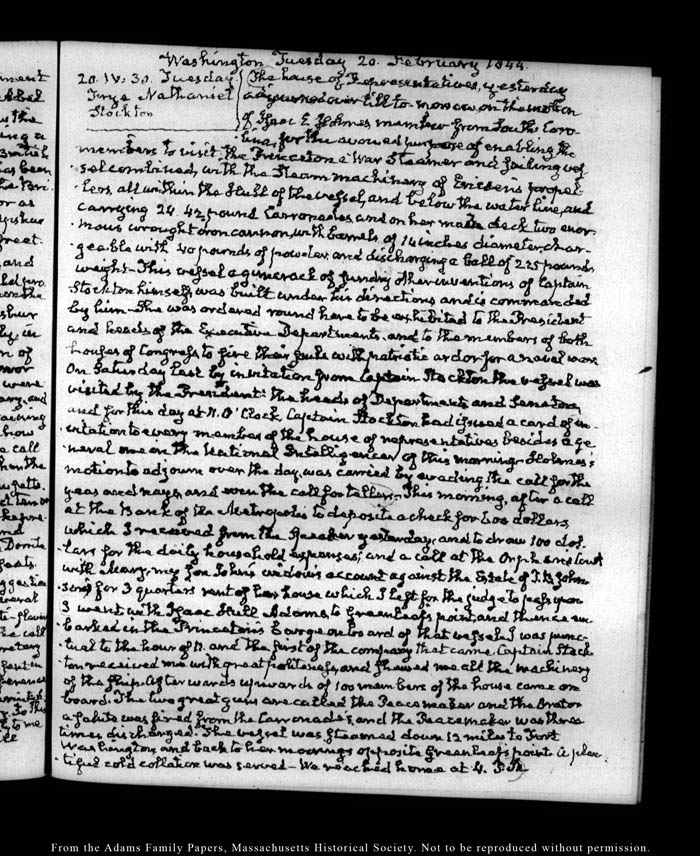 Washington Tuesday 20. February 1844.
20. IV: 30. Tuesday
Inge Nathaniel
Stockton
The house of Representatives, yesterday
adjourned over till to-morrow, on the motion
of Isaac E Holmes member from South Caro-
lina, for the avowed purpose of enabling the
members to visit the Princeton a War Steamer and sailing ves-
sel combined, with the steam machinery of Ericson's propel-
lers, all within the Hull of the vessel, and below the water line, and
carrying 24. 42 pound Carronades and on her main deck two enor-
mous wrought iron cannon, with barrels of 14 inches diameter, char-
geable with 40 pounds of powder, and discharging a ball of 225 pounds
weight. This vessel a gimcrack of sundry other inventions of Captain
Stockton himself, was built under his directions and is commanded
by him. She was ordered round here to be exhibited to the President
and heads of the Executive Departments, and to the members of both
houses of Congress to fire their souls with patriotic ardor for a naval war
On Saturday last by invitation from Captain Stockton the vessel was
visited by the President, the heads of Departments and Senators,
and for this day at XI. O'Clock, Captain Stockton had issued a card of in-
vitation to every member of the house of representatives besides a ge-
neral one in the National Intelligencer of this morning. Holmes's
motion to adjourn over the day, was carried by evading the call for the
yeas and nays, and even the call for tellers. This morning, after a call
at the Bank of the Metropolis to deposite a check for dollars,
which I received from the Speaker yesterday, and to draw 100 dol-
lars for the daily household expenses, and a call at the Orphans Court
with Mary, my son John's widow's account against the Estate of T. B. John-
son's for 3 quarters rent of her house which I left for the judge to pass upon
I went with Isaac Hull Adams, to Greenleafs point, and thence em-
barked in the Princeton's barge on board of that vessel. I was punc-
tual to the hour of XI. and the first of the company that came. Captain Stock-
ton received me with great politeness, and shewed me all the machinery
of the ship. Afterwards upwards of 100 members of the house came on
board. The two great guns are called the Peacemaker and the Orator
a salute was fired from the Carronades, and the Peacemaker was three
times discharged. The vessel was steamed down 12 miles to Fort
Washington, and back to her moorings opposite Greenleafs point. A plen-
tiful cold collation was served. We reached home at 4. P.M.
From the Adams Family Papers, Massachusetts Historical Society. Not to be reproduced without permission.